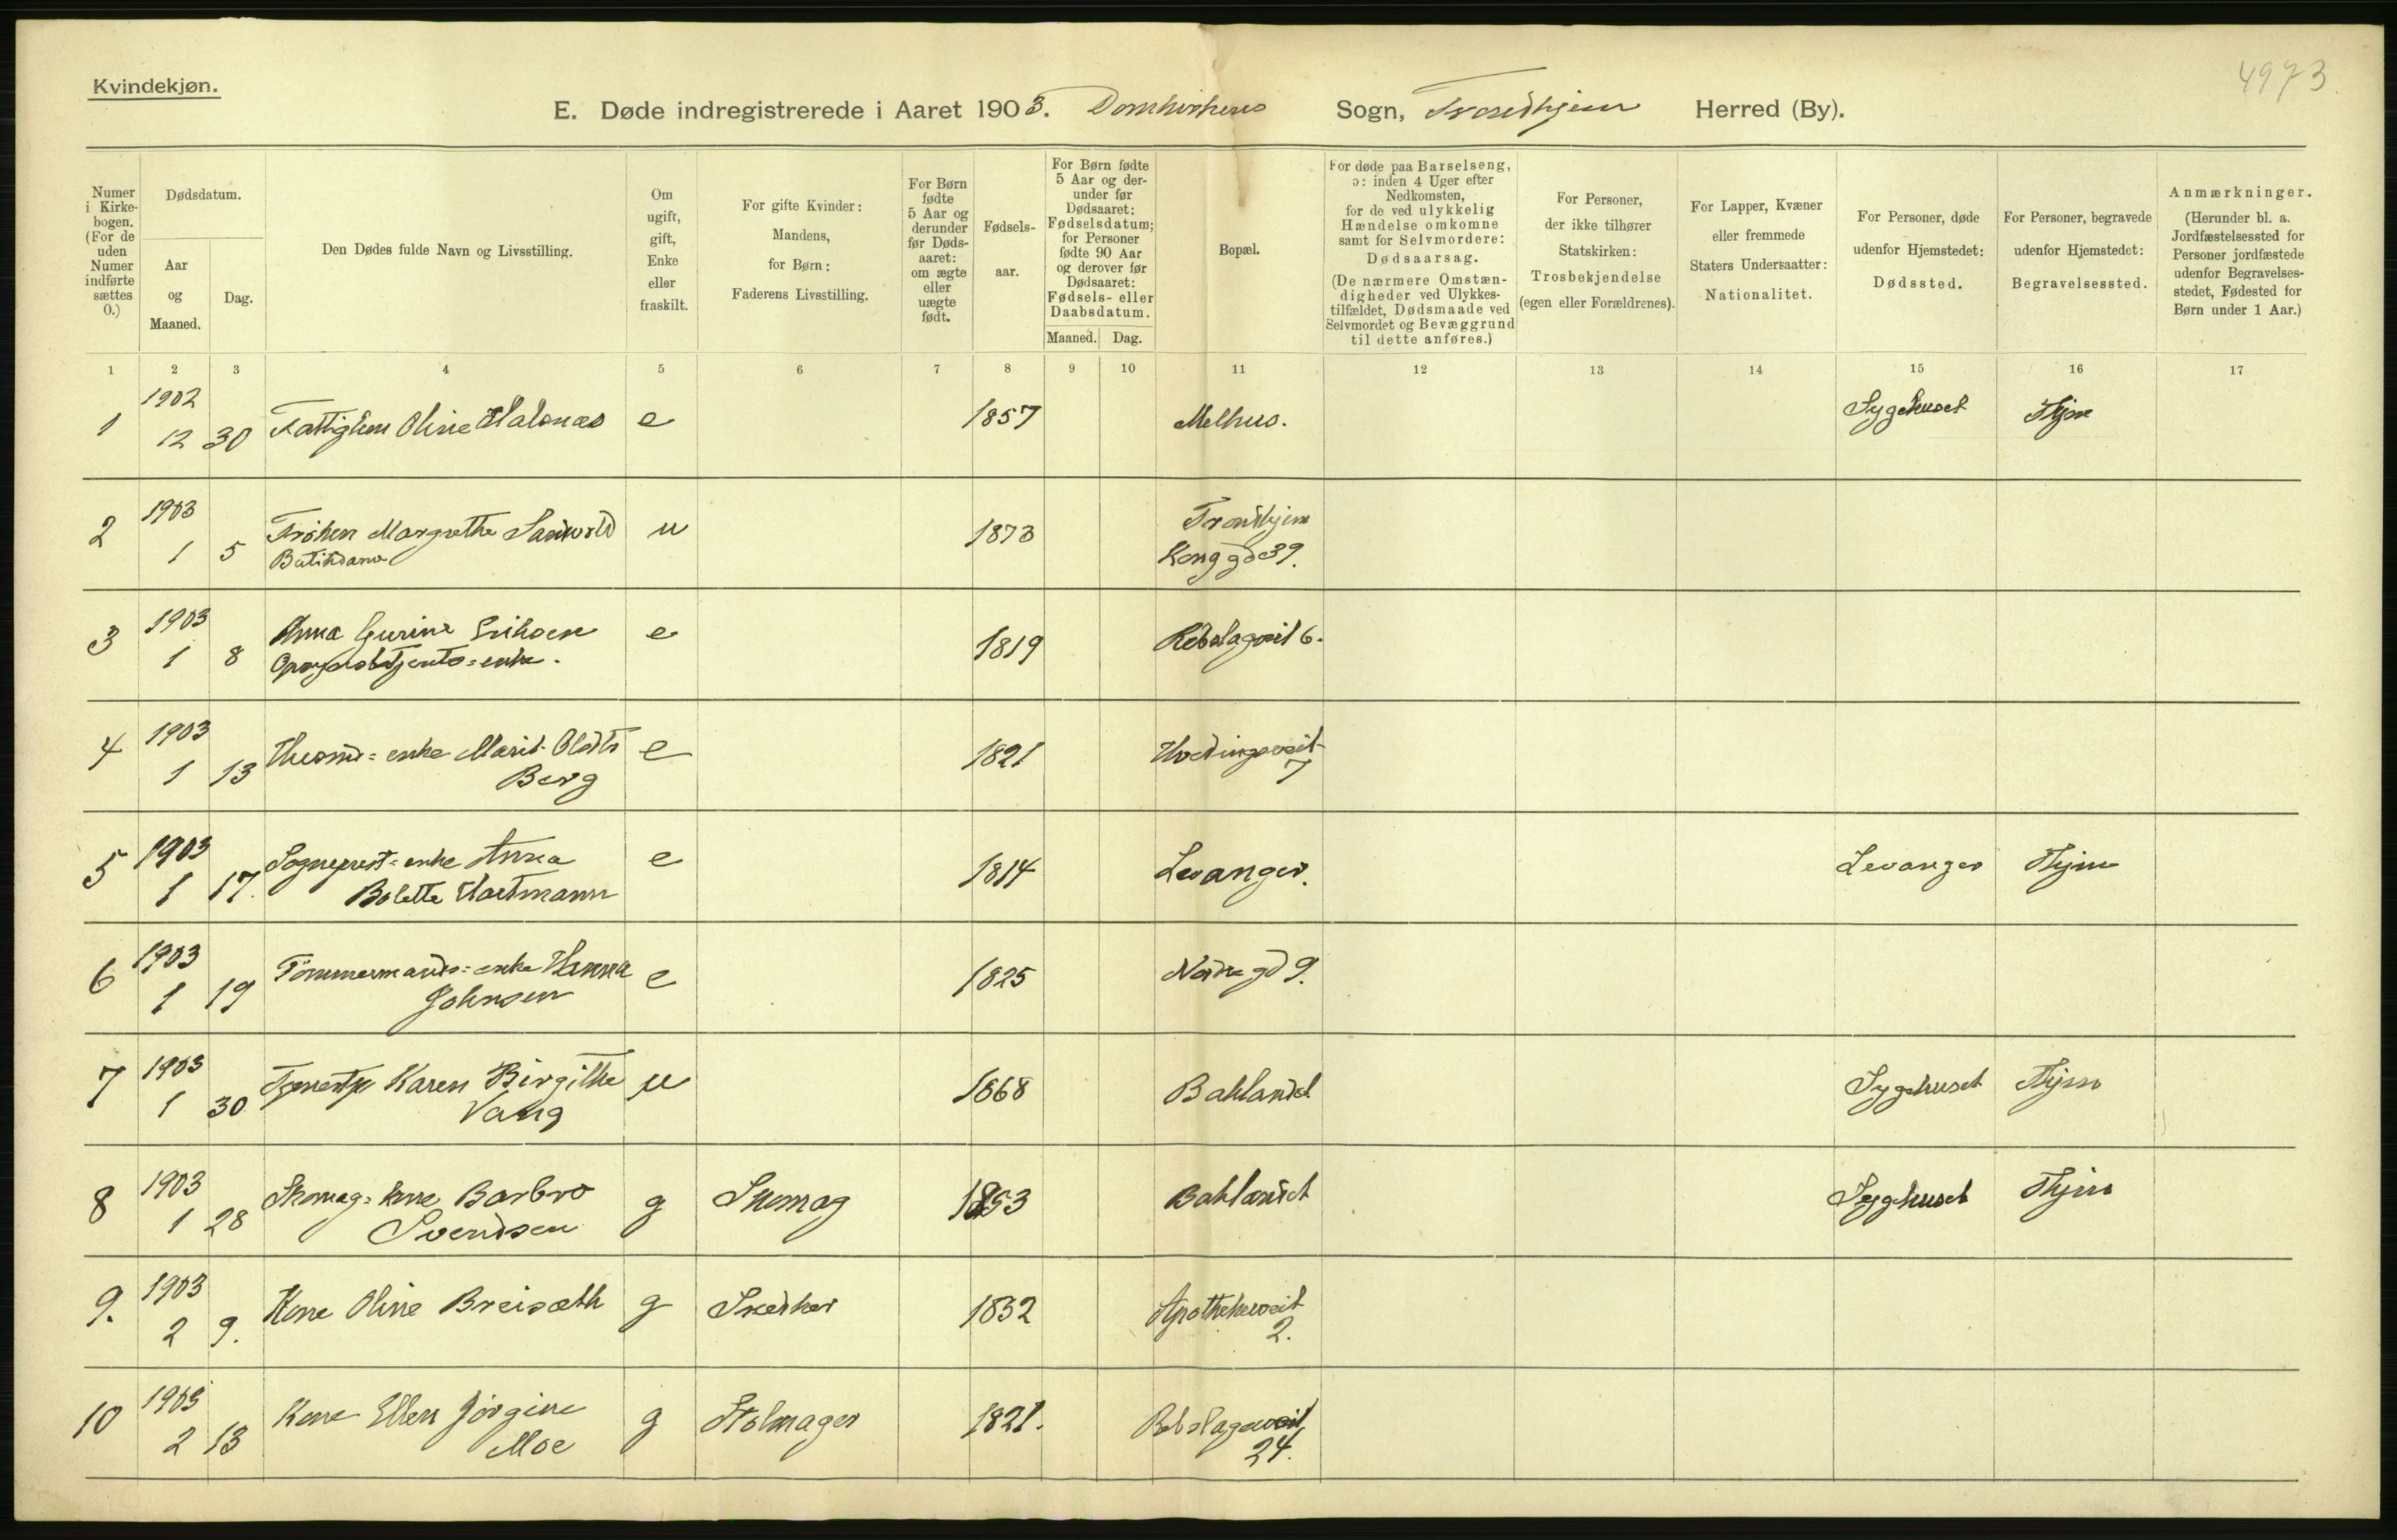 4973
Kvindekjøn.
E. Døde indregistrerede i Aaret 1903. Domkirkens Sogn, Trondhjem Herred (By).
Numer i Kirkebogen. (For de uden Numer indførte sættes 0.)
Dødsdatum.
Aar og Maaned.
Dag.
Den Dødes fulde Navn og Livsstilling.
Om ugift, gift, Enke eller fraskilt.
For gifte Kvinder: Mandens, for Børn: Faderens Livsstilling.
For Børn fødte 5 Aar og derunder før Dødsaaret: om ægte eller uægte født.
Fødselsaar.
For Børn fødte 5 Aar og derunder før Dødsaaret: Fødselsdatum; for Personer fødte 90 Aar og derover før Dødsaaret: Fødsels- eller Daabsdatum.
Maaned. Dag.
Bopæl.
For døde paa Barselseng, ɔ: inden 4 Uger efter Nedkomsten, for de ved ulykkelig Hændelse omkomne samt for Selvmordere: Dødsaarsag.
(De nærmere Omstændigheder ved Ulykkestilfældet, Dødsmaade ved Selvmordet og Bevæggrund til dette anføres.)
For Personer, der ikke tilhører Statskirken: Trosbekjendelse (egen eller Forældrenes).
For Lapper, Kvæner eller fremmede Staters Undersaatter: Nationalitet.
For Personer, døde udenfor Hjemstedet: Dødssted.
For Personer, begravede udenfor Hjemstedet: Begravelsessted.
Anmærkninger.
(Herunder bl. a. Jordfæstelsessted for Personer jordfæstede udenfor Begravelsesstedet, Fødested for Børn under 1 Aar.)
1 2 3 4 5 6 7 8 9 10 11 12 13 14 15 16 17
1 1902 12 30 Fattiglem Oline Halsnæs e 1857 Melhus. Sygehuset Thjem
2 1903 1 5 Frøken Margrethe Sandvold u 1873 Trondhjem
Butikdame Kong gd 39.
3 1903 1 8 Anna Gurine Eriksen e 1819 Rebslagveit 6.
enke.
4 1903 1 13 Husmd=enke Marit Oldts e 1821
Berg 7
5 1903 1 17. Sogneprest=enke Anna e 1814 Levanger. Levanger Thjem
Bolette Hartmann
6 1903 1 19 Tømmermands=enke Hanna e 1825 Nordre gd 9.
Johnsen
7 1903 1 30 Tjenestp Karen Birgitte u 1868 Baklandet Sygehuset Thjem
Vang
8 1903 1 28 Skomag=kone Barbro g Skomag 1853 Baklandet Sygehuset Thjem
Svendsen
9. 1903 2 9. Kone Oline Breisæth g Snedker 1832 Apothekerveit
2.
10 1903 2 13 Kone Ellen Jørgine g Stolmager 1821. Rebslagerveit
Moe 24.